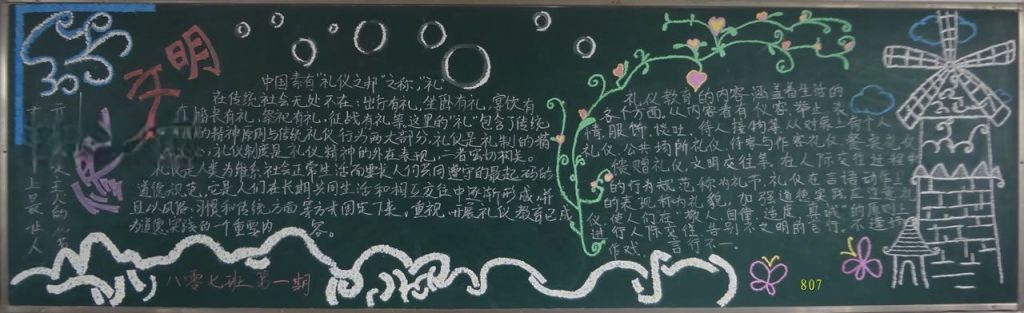 文明
中国素有“礼仪之邦”之称，“礼”
在传统社会无处不在：出行有礼，坐卧有礼，宴饮有
有礼，祭祀有礼，征战有礼等。这里的“礼”包含了传统
的精神原则与传统礼仪行为两大部分。礼仪是礼制的精
礼仪制度是礼仪精神的外在表现，二者密切相连。
礼仪是人类为维系社会正常生活而要求人们共同遵守的最起码的
道德规范，它是人们在长期共同生活和相互交往中逐渐形成，并
且以风俗、习惯和传统方面等方式固定下来。重视、开展礼仪教育已成
为道德实践的一个重要内容。
礼仪教育的内容涵盖着生活的
各个方面。从内容看有仪容、举止、表
情、服饰、谈吐、待人接物等；从对象上看个人
礼仪、公共场所礼仪、待客与作客礼仪、餐桌礼仪
馈赠礼仪、文明交往等。在人际交往过程
的行为规范称为礼节，礼仪在言语动作上
的表现称为礼貌。加强道德实践应注意礼
仪，使人们在“敬人、自律、适度、真诚”的原则上
进行人际交往，告别不文明的言行，不
言行不一。
八零七班 第一期
807